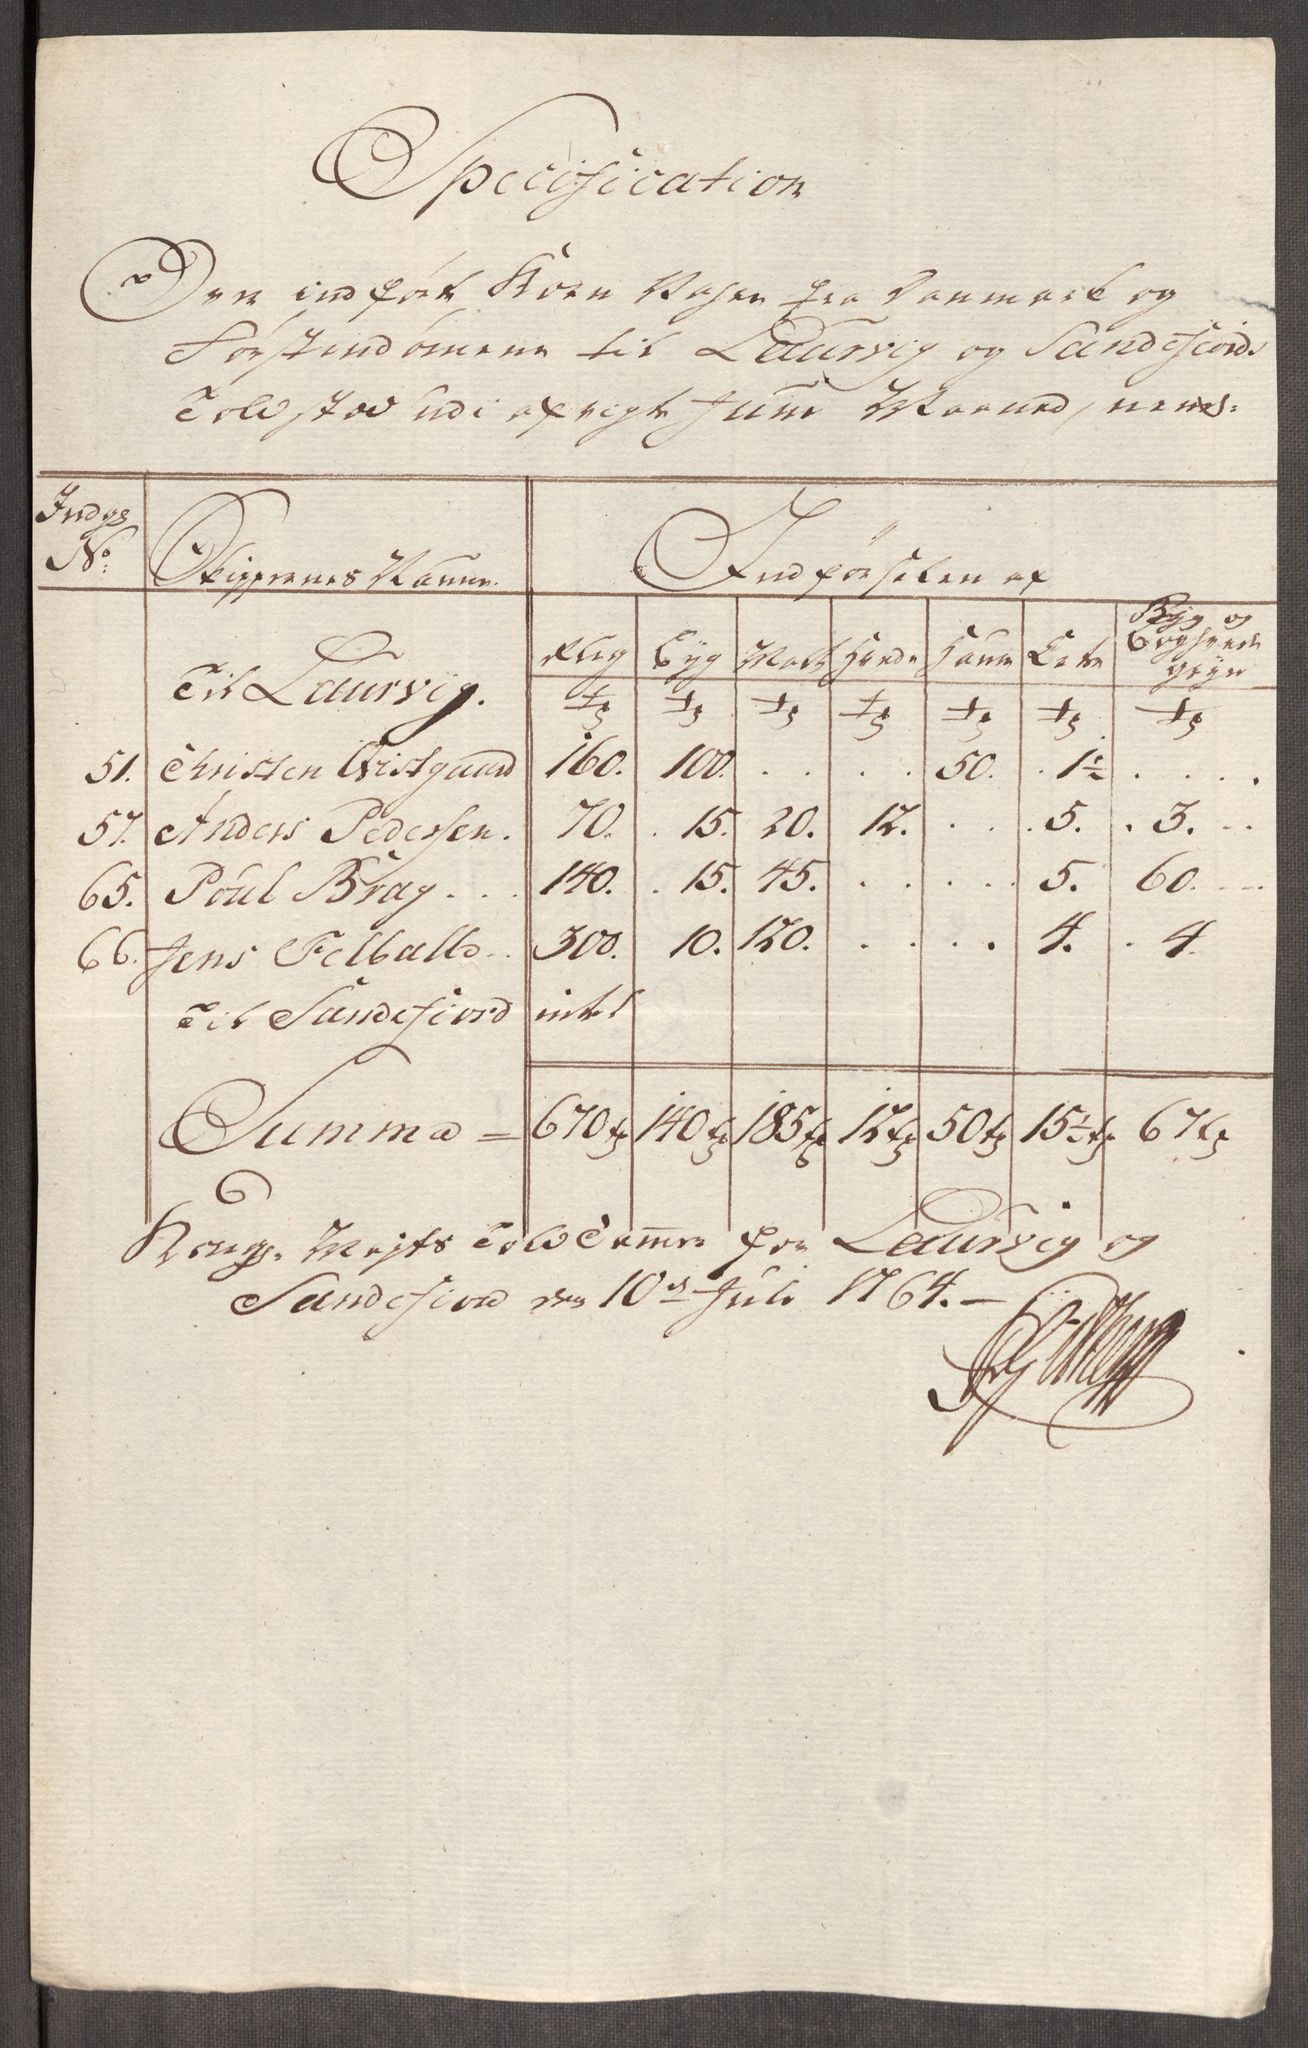 Specification
Over indförte Korn Vahre fra Danmark og
Förstendömene til Laurvig og Sandefiords
Toldsted udi afvigte Junii Maaned, nemlig:
Indgs No: Skippernes Nafne. Indförselen af
Til Laurvig. Rug Byg Malt Hvede Havre Erter Byg og Boghvede gryn
tr tr tr tr tr tr tr
51. Christen Qvistgaard 160. 100. . . . . 50. . 1½ . . . .
57. Anders Pedersen. 70. . 15. 20. 12. . . . 5. . 3. . .
65. Poul Bray . . . 140. . 15. 45. . . . . . 5. 60. . . .
66. Jens Felballe . . 300. 10. 120. . . . . 4. . 4.
Til Sandefiord intet
Summa = 670 tr 140 tr 185 tr 12 tr 50 tr 15½ tr 67 tr
Kongl. Mayts Told Cammer for Laurvig og
Sandefiord den 10de Juli 1764. –